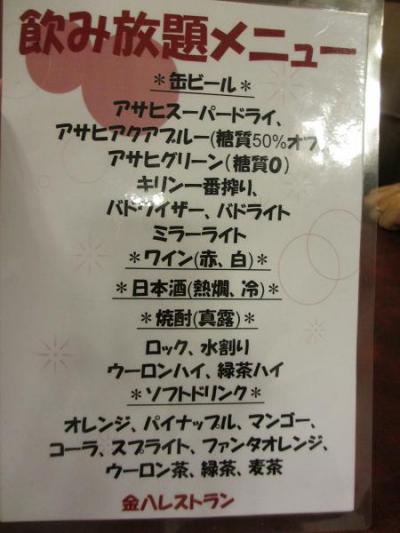 飲み放題メニュー
＊缶ビール＊
アサヒスーパードライ、
アサヒアクアブルー(糖質50%オフ、
アサヒグリーン(糖質0)
キリン一番搾り、
バドワイザー、バドライト
ミラーライト
＊ワイン(赤、白)＊
＊日本酒(熱燗、冷)＊
＊焼酎(真露)＊
ロック、水割り
ウーロンハイ、緑茶ハイ
＊ソフトドリンク＊
オレンジ、パイナップル、マンゴー、
コーラ、スプライト、ファンタオレンジ、
ウーロン茶、緑茶、麦茶
金八レストラン